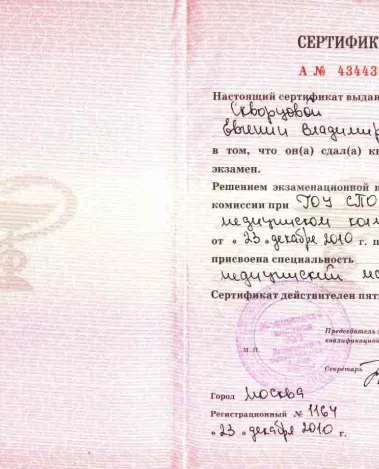 СЕРТИФИК
А № 43443
Настоящий сертификат выдан
Скворцовой
Евгении Владимир
в том, что он(а) сдал(а) кв
экзамен.
Решением экзаменационной к
комиссии при ГОУ СПО
медицинском кол
от « 23 » декабря 2010 г. п
присвоена специальность
медицинский
Сертификат действителен пят
Председатель
квалификацион
М.П.
Секретарь
Город Москва
Регистрационный № 1164
« 23 » декабря 2010 г.